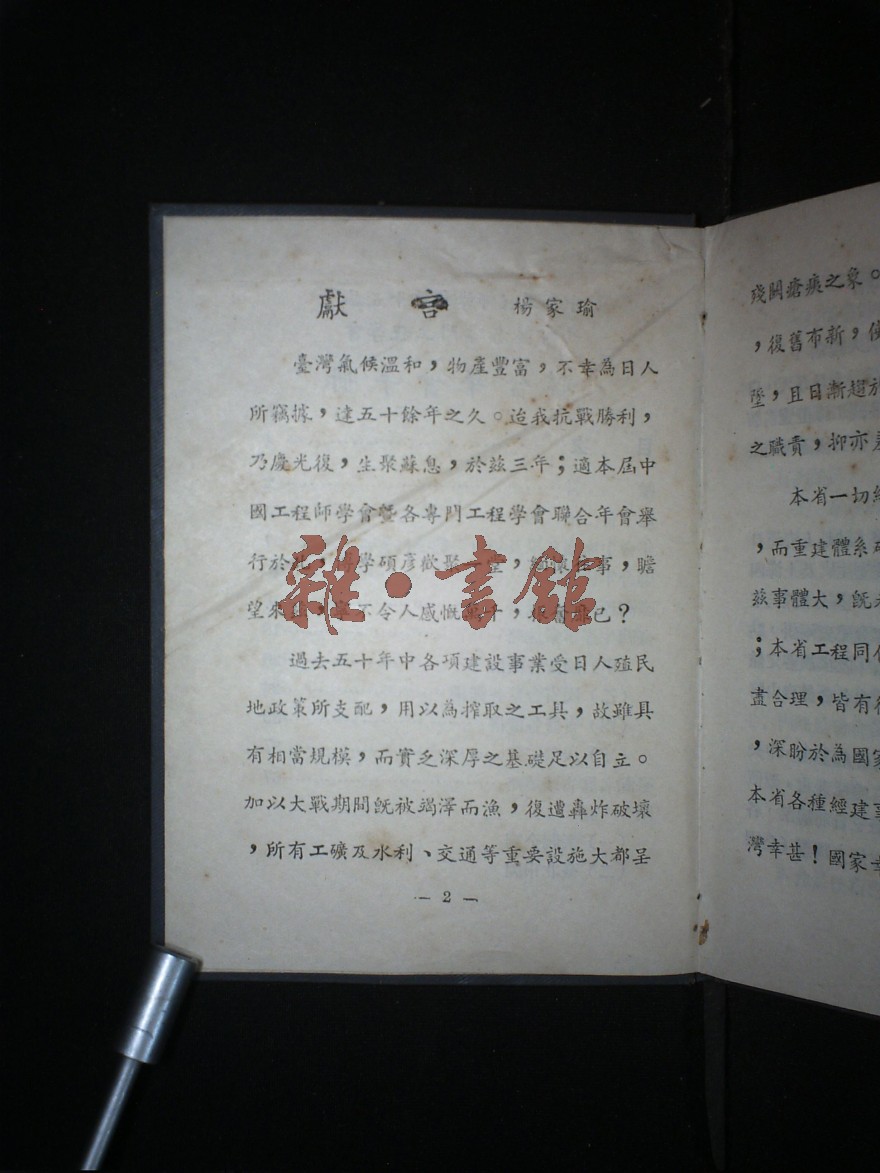 獻言 楊家瑜
臺灣氣候溫和，物產豐富，不幸為日人
所竊據，達五十餘年之久。迨我抗戰勝利，
乃慶光復，生聚蘇息，於茲三年；適本屆中
國工程師學會暨各專門工程學會聯合年會舉
行於此，學碩彥歡聚，事，瞻
望來，不令人感慨，已？
過去五十年中各項建設事業受日人殖民
地政策所支配，用以為搾取之工具，故雖具
有相當規模，而實乏深厚之基礎足以自立。
加以大戰期間旣被竭澤而漁，復遭轟炸破壞
，所有工礦及水利、交通等重要設施大都呈
— 2 —
殘闕瘡痍之象。
，復舊布新，
墜，且日漸趨於
之職責，抑亦
本省一切經
，而重建體系
茲事體大，旣
；本省工程同
盡合理，皆有
，深盼於為國家
本省各種經建事
灣幸甚！國家幸
雜·書館